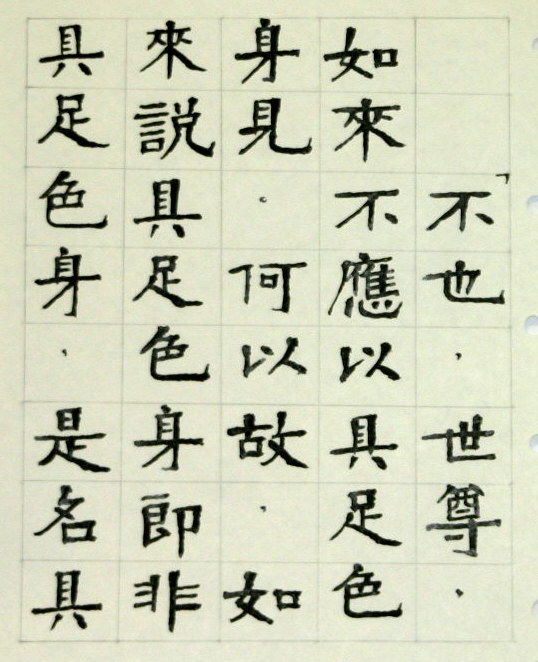 「不也·世尊·
如來不應以具足色
身見。何以故·如
來説具足色身即非
具足色身·是名具